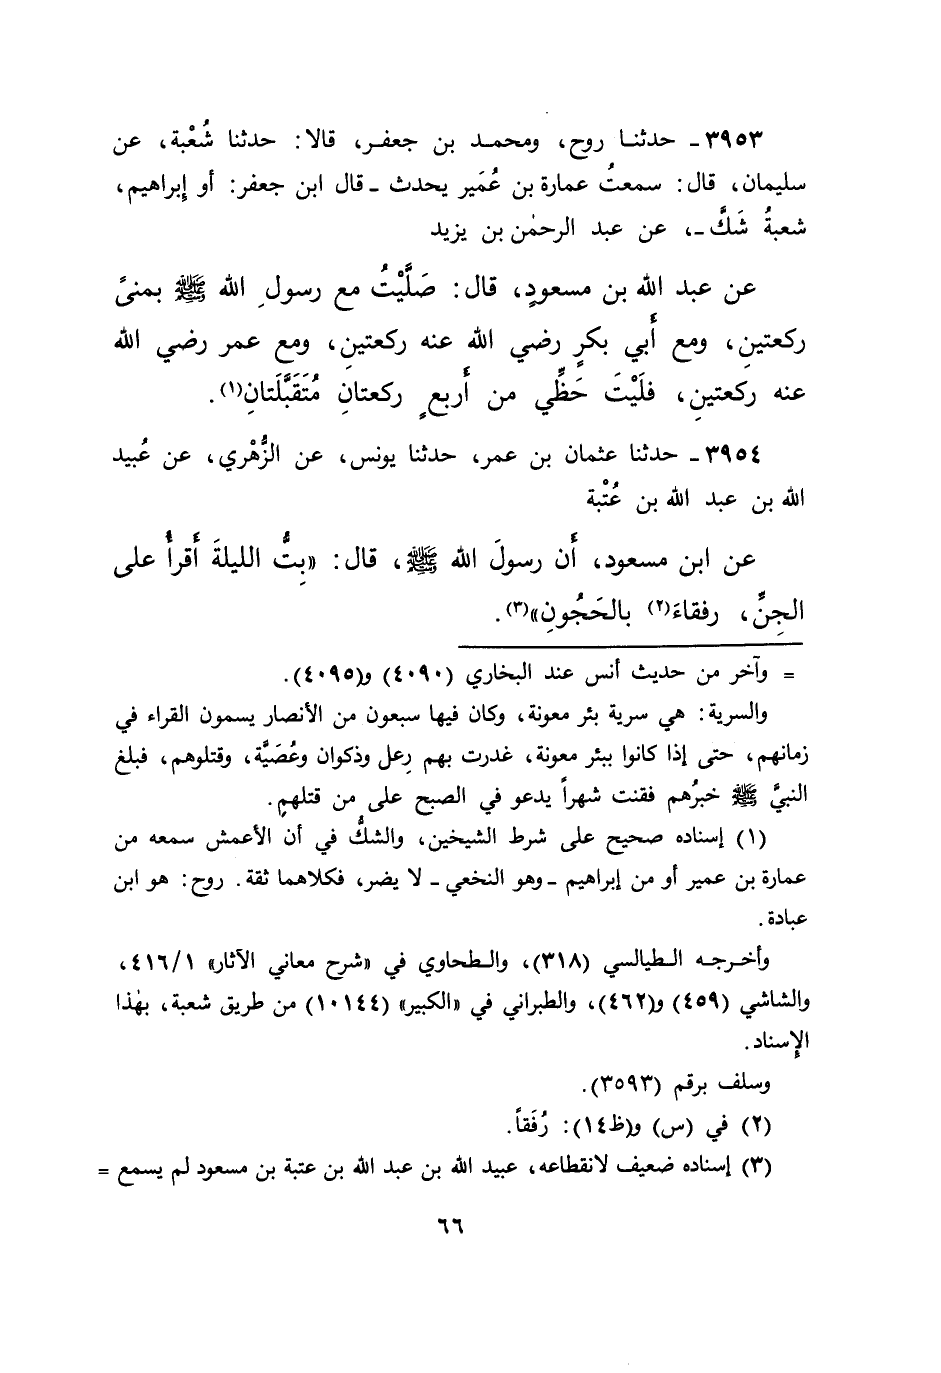 ٣٩٥٣ـ حدثنـا روح، ومحمـد بن جعفـر، قالا: حدثنا شُعْبة، عن
سليمان، قال: سمعتُ عمارة بن عُمَير يحدث ـ قال ابن جعفر: أو إبراهيم،
شعبةُ شَكَّ ـ، عن عبد الرحمٰن بن يزيد
عن عبد الله بن مسعودٍ، قال: صَلَّيْتُ مع رسولِ الله ﷺ بمنىً
ركعتينِ، ومع أَبي بكرٍ رضي الله عنه ركعتينِ، ومع عمر رضي الله
عنه ركعتينِ، فلَيْتَ حَظِّي من أَربعٍ ركعتانِ مُتَقَبَّلَتانِ(١).
٣٩٥٤ـ حدثنا عثمان بن عمر، حدثنا يونس، عن الزُّهْري، عن عُبيد
الله بن عبد الله بن عُتْبة
عن ابن مسعود، أَن رسولَ الله ﷺ، قال: «بِتُّ الليلةَ أَقرأُ على
الجِنِّ، رفقاءَ(٢) بالحَجُونِ»(٣).
= وآخر من حديث أنس عند البخاري (٤٠٩٠) و(٤٠٩٥).
والسرية: هي سرية بئر معونة، وكان فيها سبعون من الأنصار يسمون القراء في
زمانهم، حتى إذا كانوا ببئر معونة، غدرت بهم رِعل وذكوان وعُصَيَّة، وقتلوهم، فبلغ
النبيَّ ﷺ خبرُهم فقنت شهراً يدعو في الصبح على من قتلهم.
(١) إسناده صحيح على شرط الشيخين، والشكُّ في أن الأعمش سمعه من
عمارة بن عمير أو من إبراهيم ـ وهو النخعي ـ لا يضر، فكلاهما ثقة. روح: هو ابن
عبادة.
وأخـرجـه الـطيالسي (٣١٨)، والـطحاوي في «شرح معاني الآثار» ٤١٦/١،
والشاشي (٤٥٩) و(٤٦٢)، والطبراني في «الكبير» (١٠١٤٤) من طريق شعبة، بهٰذا
الإسناد.
وسلف برقم (٣٥٩٣).
(٢) في (س) و(ظ١٤): رُفَقاً.
(٣) إسناده ضعيف لانقطاعه، عبيد الله بن عبد الله بن عتبة بن مسعود لم يسمع =
٦٦